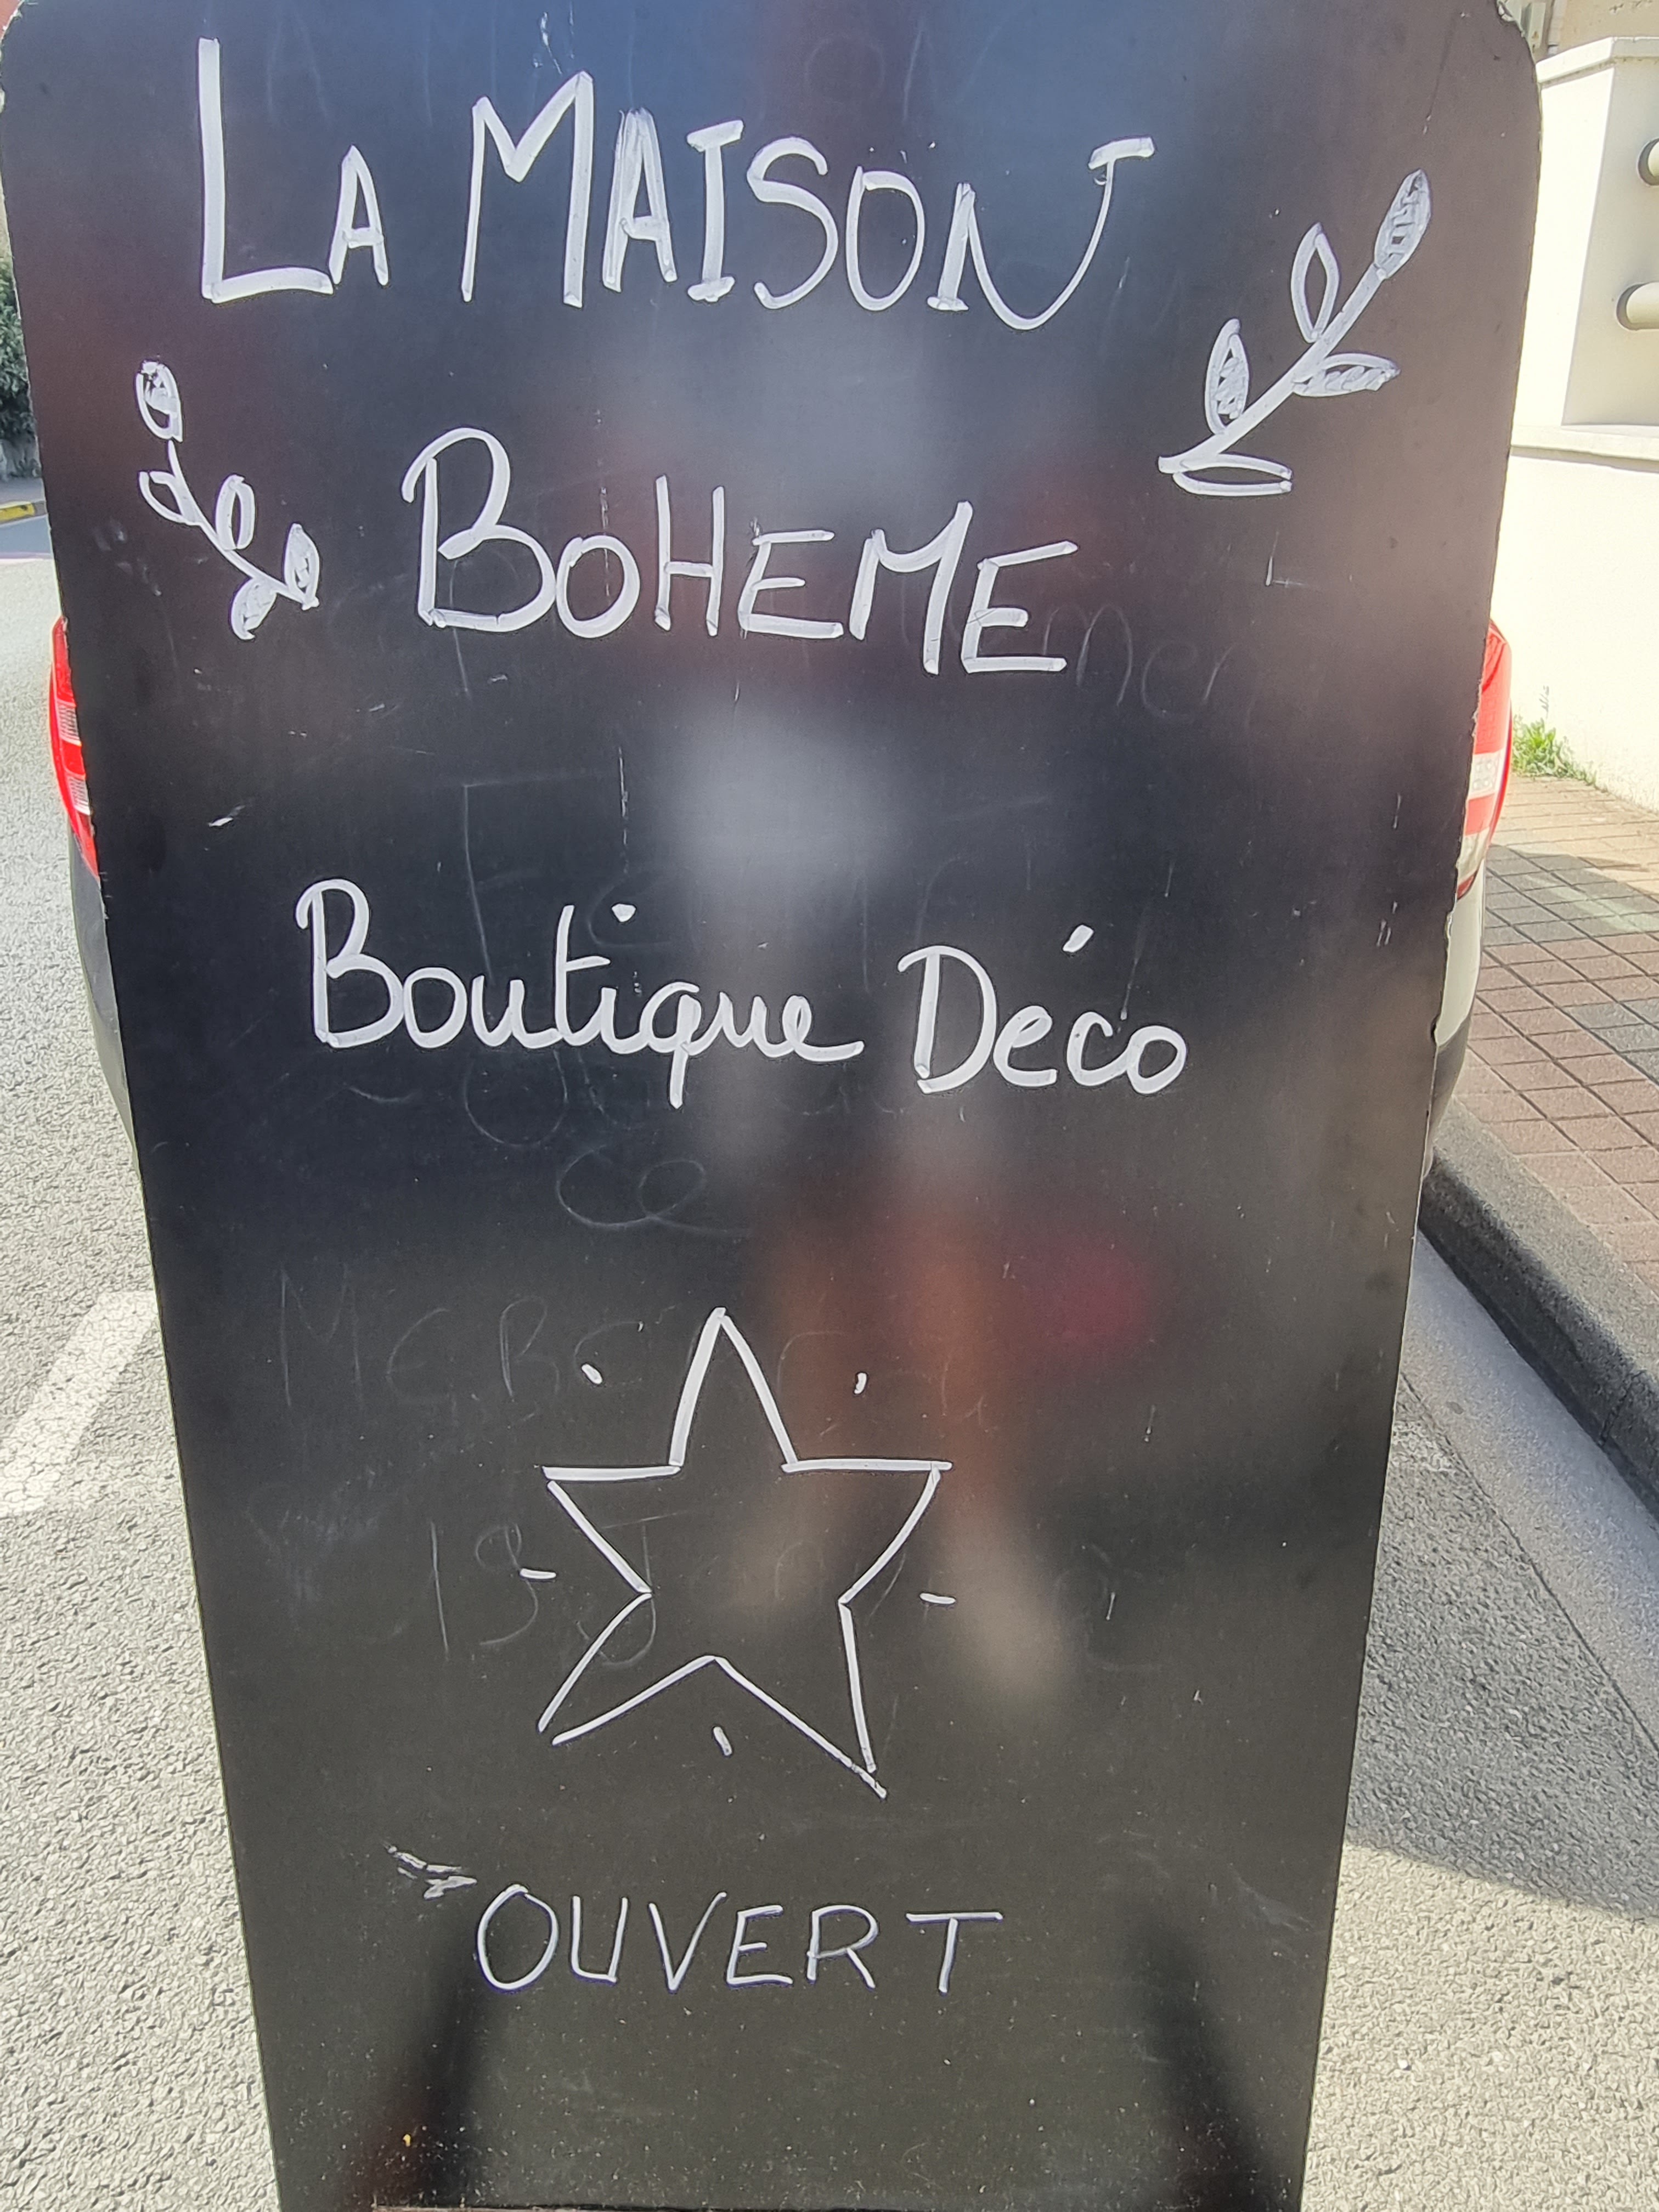 LA MAISON
BOHEME
Boutique Déco
OUVERT